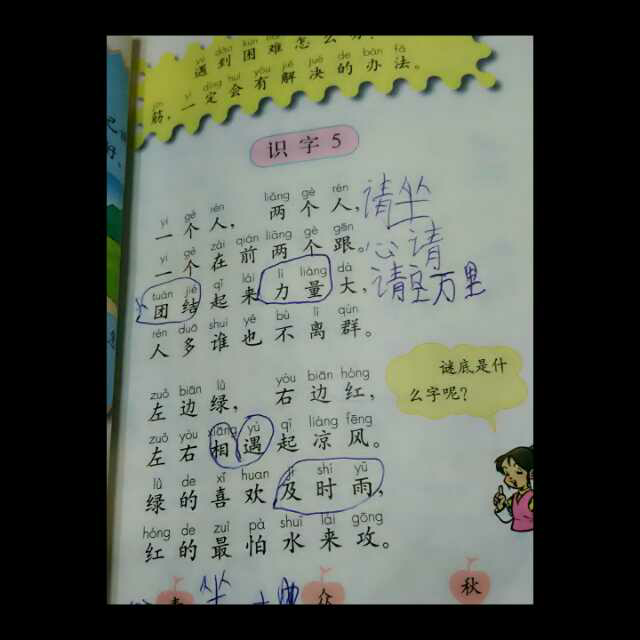 遇到困难怎么办
jīn yí dìng huì yǒu jiě jué de bàn fǎ
筋，一定会有解决的办法。
识字5
yí gè rén liǎng gè rén
一个人，两个人，
请坐
yí gè zài qián liǎng gè gēn
一个在前两个跟。
心请
tuán jié qǐ lái lì liàng dà
团结起来力量大，
请 万里
rén duō shuí yě bù lí qún
人多谁也不离群。
谜底是什
么字呢？
zuǒ biān lǜ yòu biān hóng
左边绿，右边红，
zuǒ yòu xiāng yù qǐ liáng fēng
左右相遇起凉风。
lǜ de xǐ huan jí shí yǔ
绿的喜欢及时雨，
hóng de zuì pà shuǐ lái gōng
红的最怕水来攻。
坐
众
秋